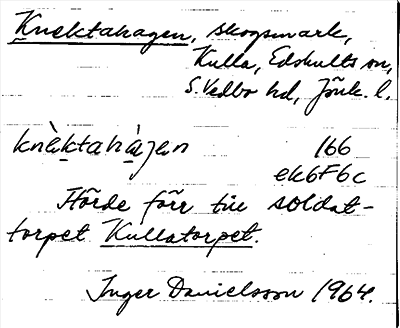 Knektahagen, skogsmark,
Kulla, Edshults sn,
S. Vedbo hd, Jönk. l.
knèktahàgen 166
ek6F6c
Hörde förr till soldat-
torpet Kullatorpet.
Inger Danielsson 1964.